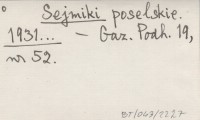 Sejmiki poselskie.
1931... — Gaz. Podh. 19,
nr 52.
BJ/043/2227